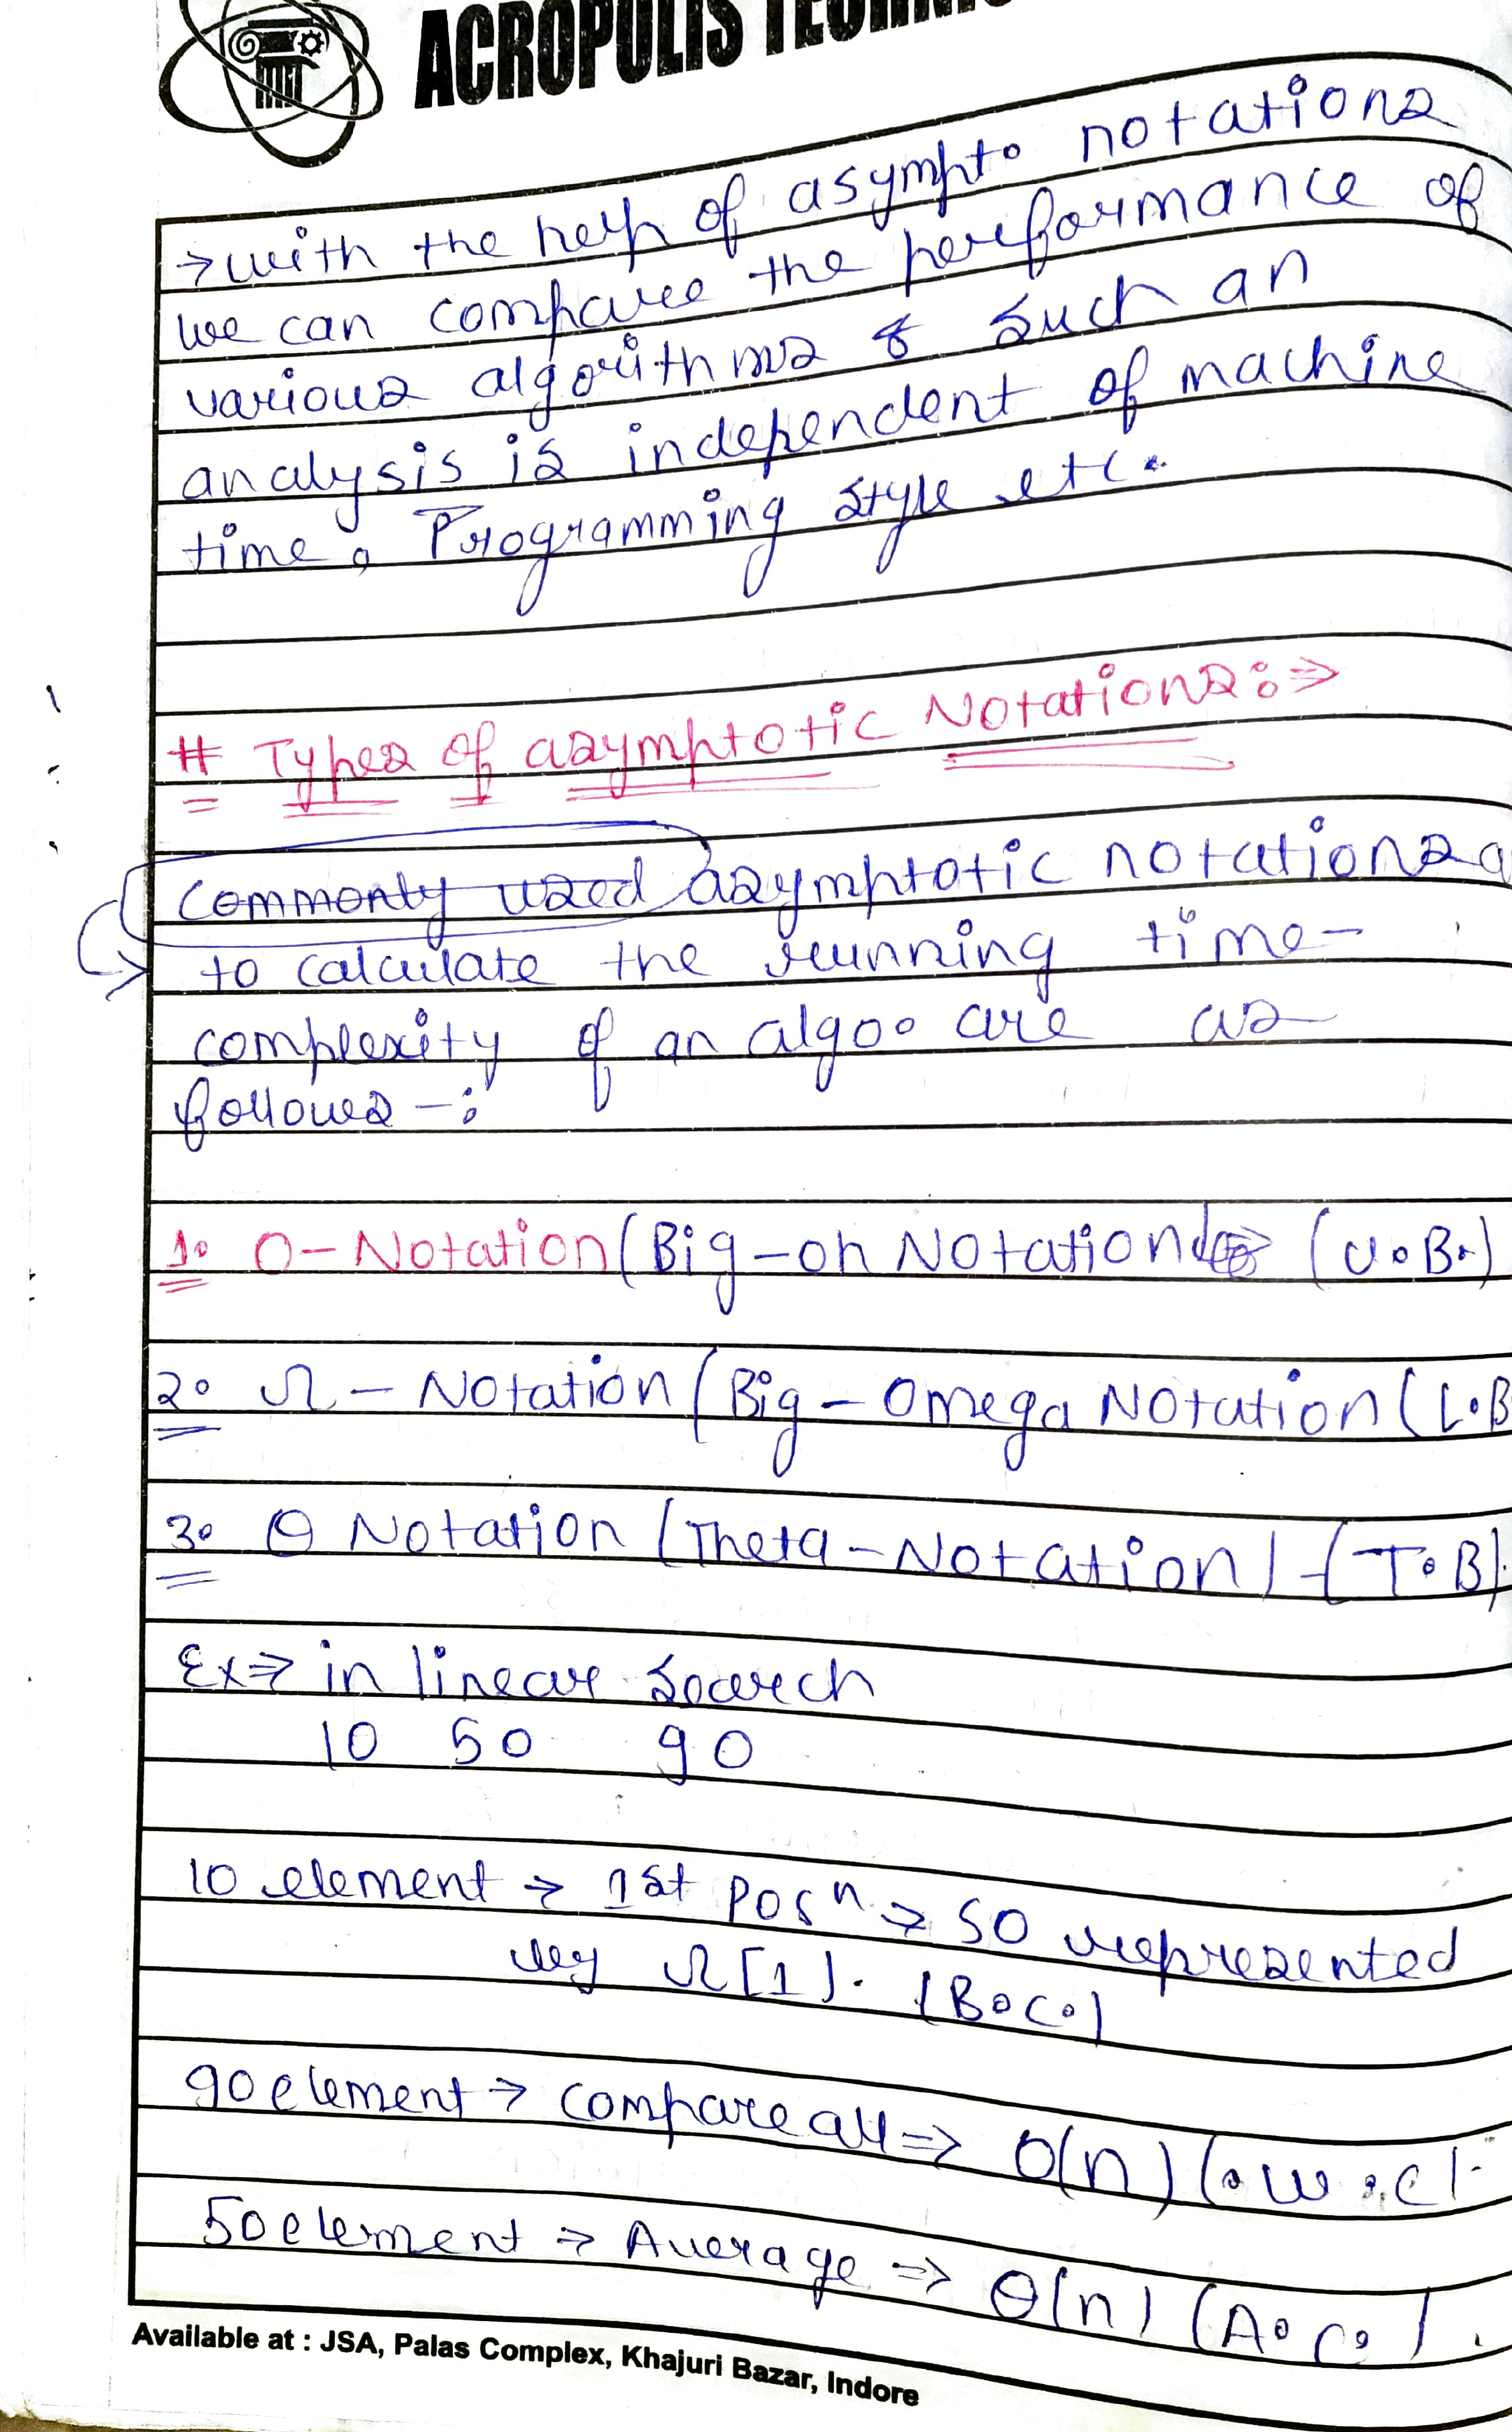 ACROPOLIS TECHN
→ with the help of asympto notations
we can compare the performance of
various algorithms & such an
analysis is independent of machine
time, Programming style etc.
# Types of asymptotic Notations:⇒
Commonly used asymptotic notations a
to calculate the running time-
complexity of an algo. are as
follows -:
1. O-Notation (Big-oh Notation) ⇒ (U.B.)
2. Ω - Notation (Big-Omega Notation (L.B
3. Θ Notation (Theta-Notation) - (T.B).
Ex⇒ in linear search
10 50 90
10 element → 1st posⁿ → so represented
by Ω[1]. (B.C.)
90 element → compare all ⇒ O(n) (.W.C).
50 element ⇒ Average ⇒ Θ(n) (A.C.).
Available at : JSA, Palas Complex, Khajuri Bazar, Indore